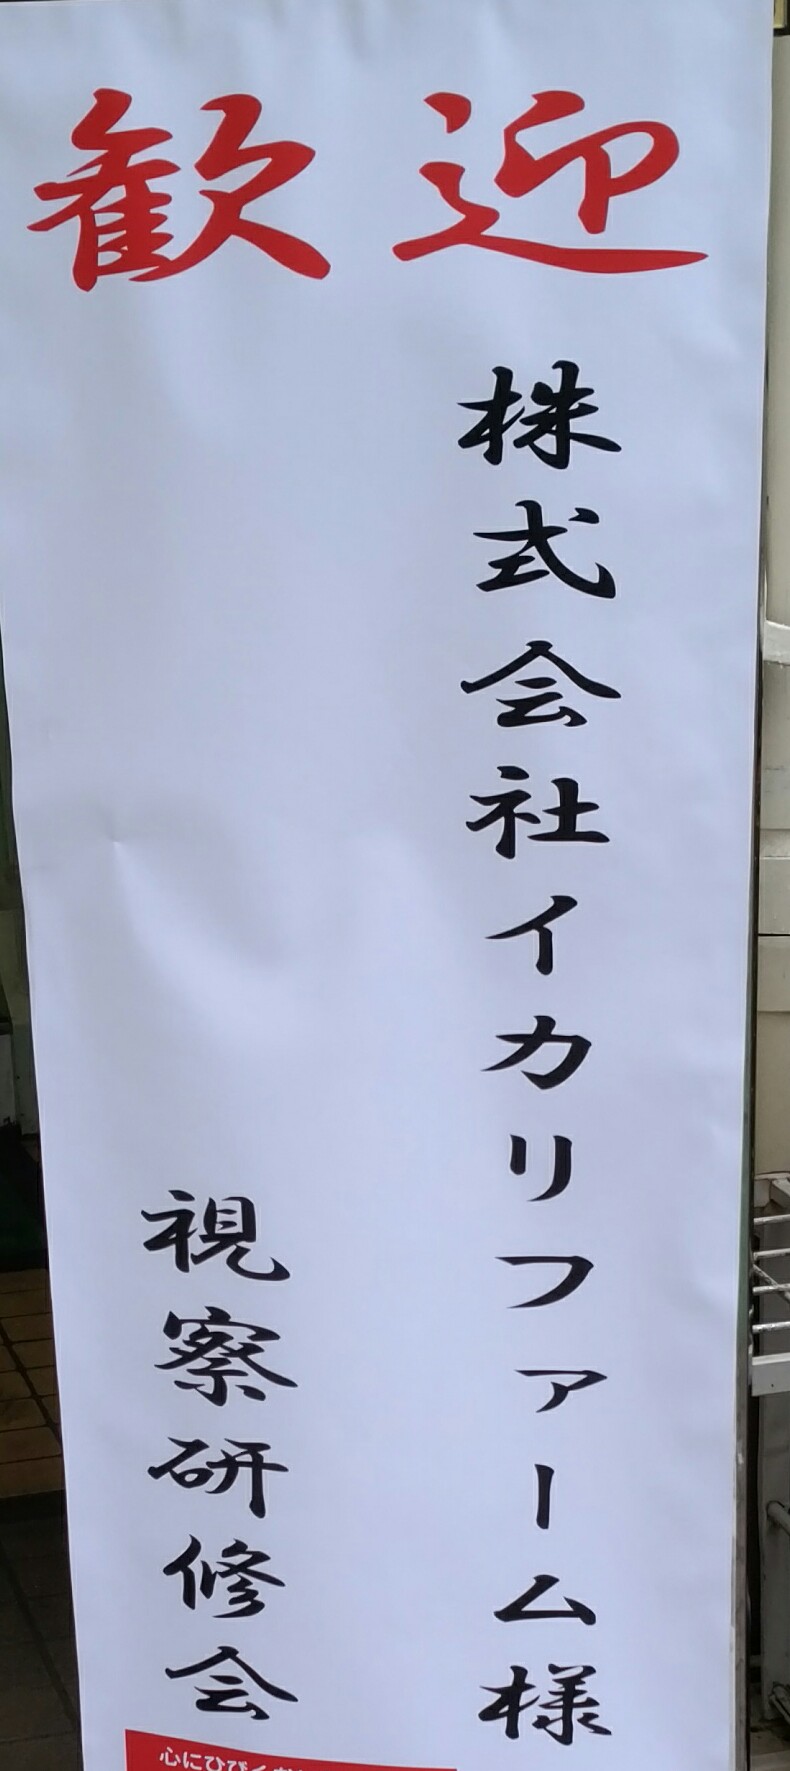 歓迎
株式会社イカリファーム様
視察研修会
心にひびく